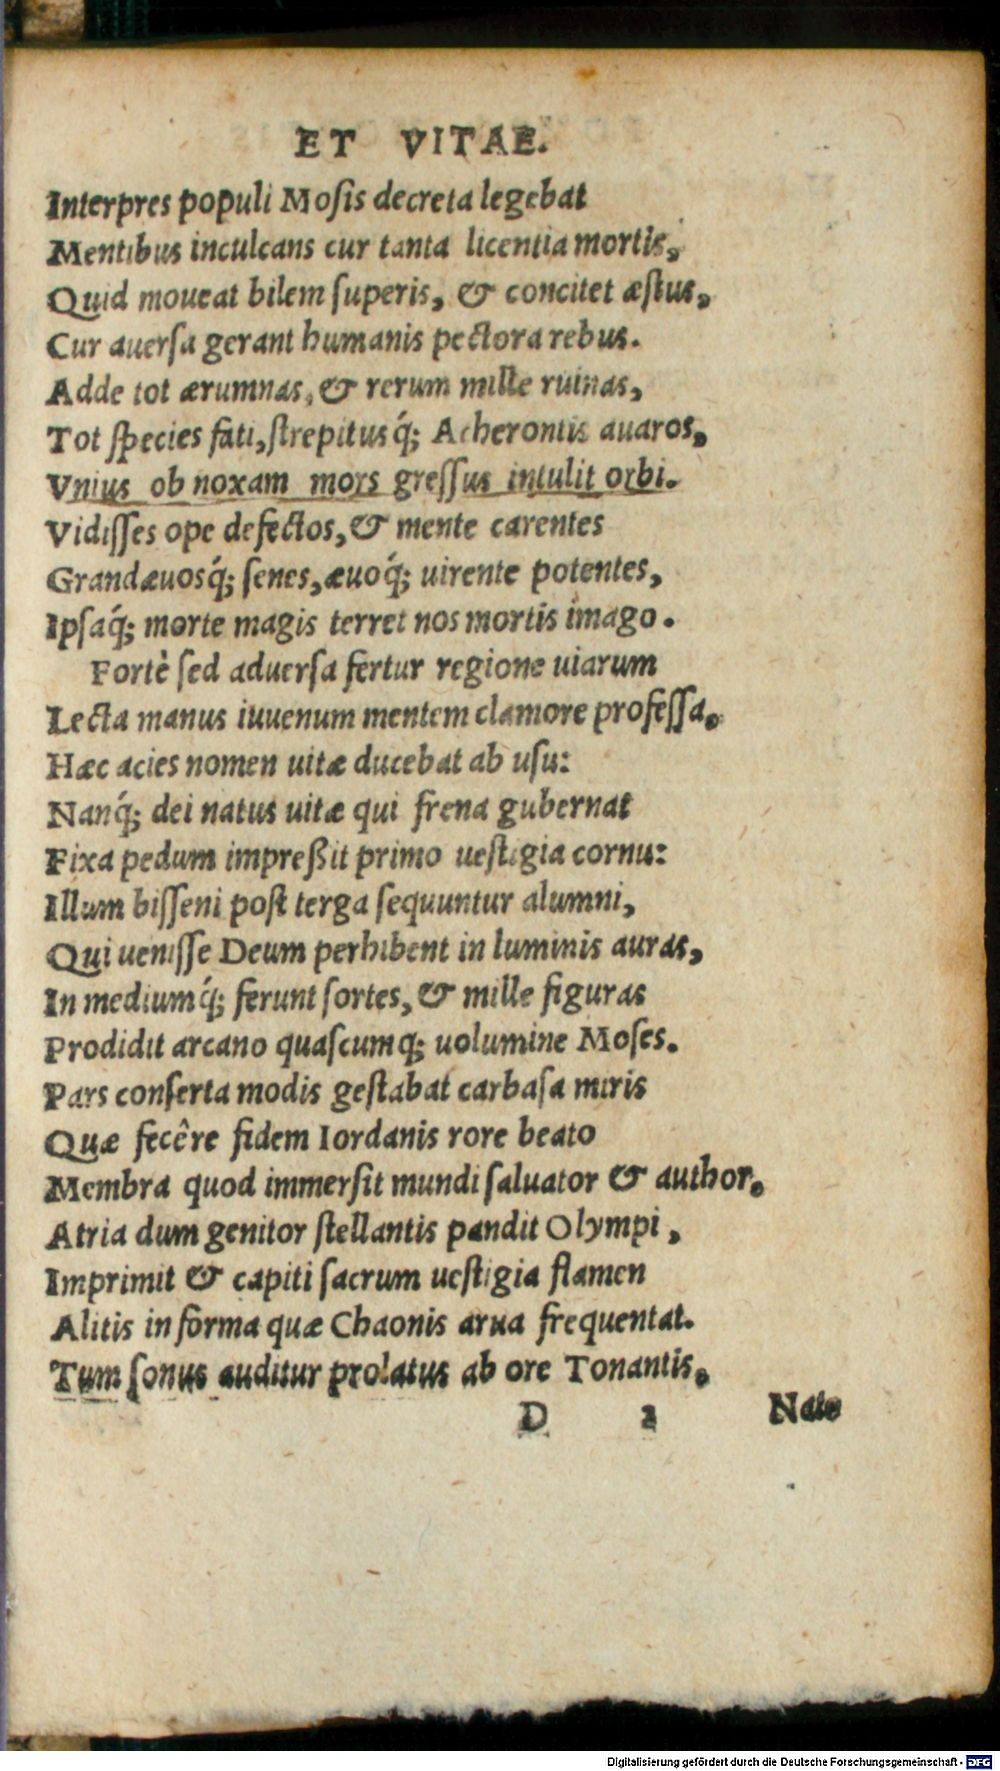 ET VITAE.
Interpres populi Mosis decreta legebat
Mentibus inculcans cur tanta licentia mortis,
Quid moueat bilem superis, & concitet æstus,
Cur auersa gerant humanis pectora rebus.
Adde tot ærumnas, & rerum mille ruinas,
Tot species fati, strepitusq́; Acherontis auaros,
Vnius ob noxam mors gressus intulit orbi.
Vidisses ope defectos, & mente carentes
Grandæuosq́; senes, æuoq́; uirente potentes,
Ipsaq́; morte magis terret nos mortis imago.
Fortè sed aduersa fertur regione uiarum
Lecta manus iuuenum mentem clamore professa.
Hæc acies nomen uitæ ducebat ab usu:
Nanq́; dei natus uitæ qui frena gubernat
Fixa pedum impreßit primo uestigia cornu:
Illum bisseni post terga sequuntur alumni,
Qui uenisse Deum perhibent in luminis auras,
In mediumq́; ferunt sortes, & mille figuras
Prodidit arcano quascumq; uolumine Moses.
Pars conserta modis gestabat carbasa miris
Quæ fecêre fidem Iordanis rore beato
Membra quod immersit mundi saluator & author.
Atria dum genitor stellantis pandit Olympi,
Imprimit & capiti sacrum uestigia flamen
Alitis in forma quæ Chaonis arua frequentat.
Tum sonus auditur prolatus ab ore Tonantis.
D 2 Nate
Digitalisierung gefördert durch die Deutsche Forschungsgemeinschaft - DFG